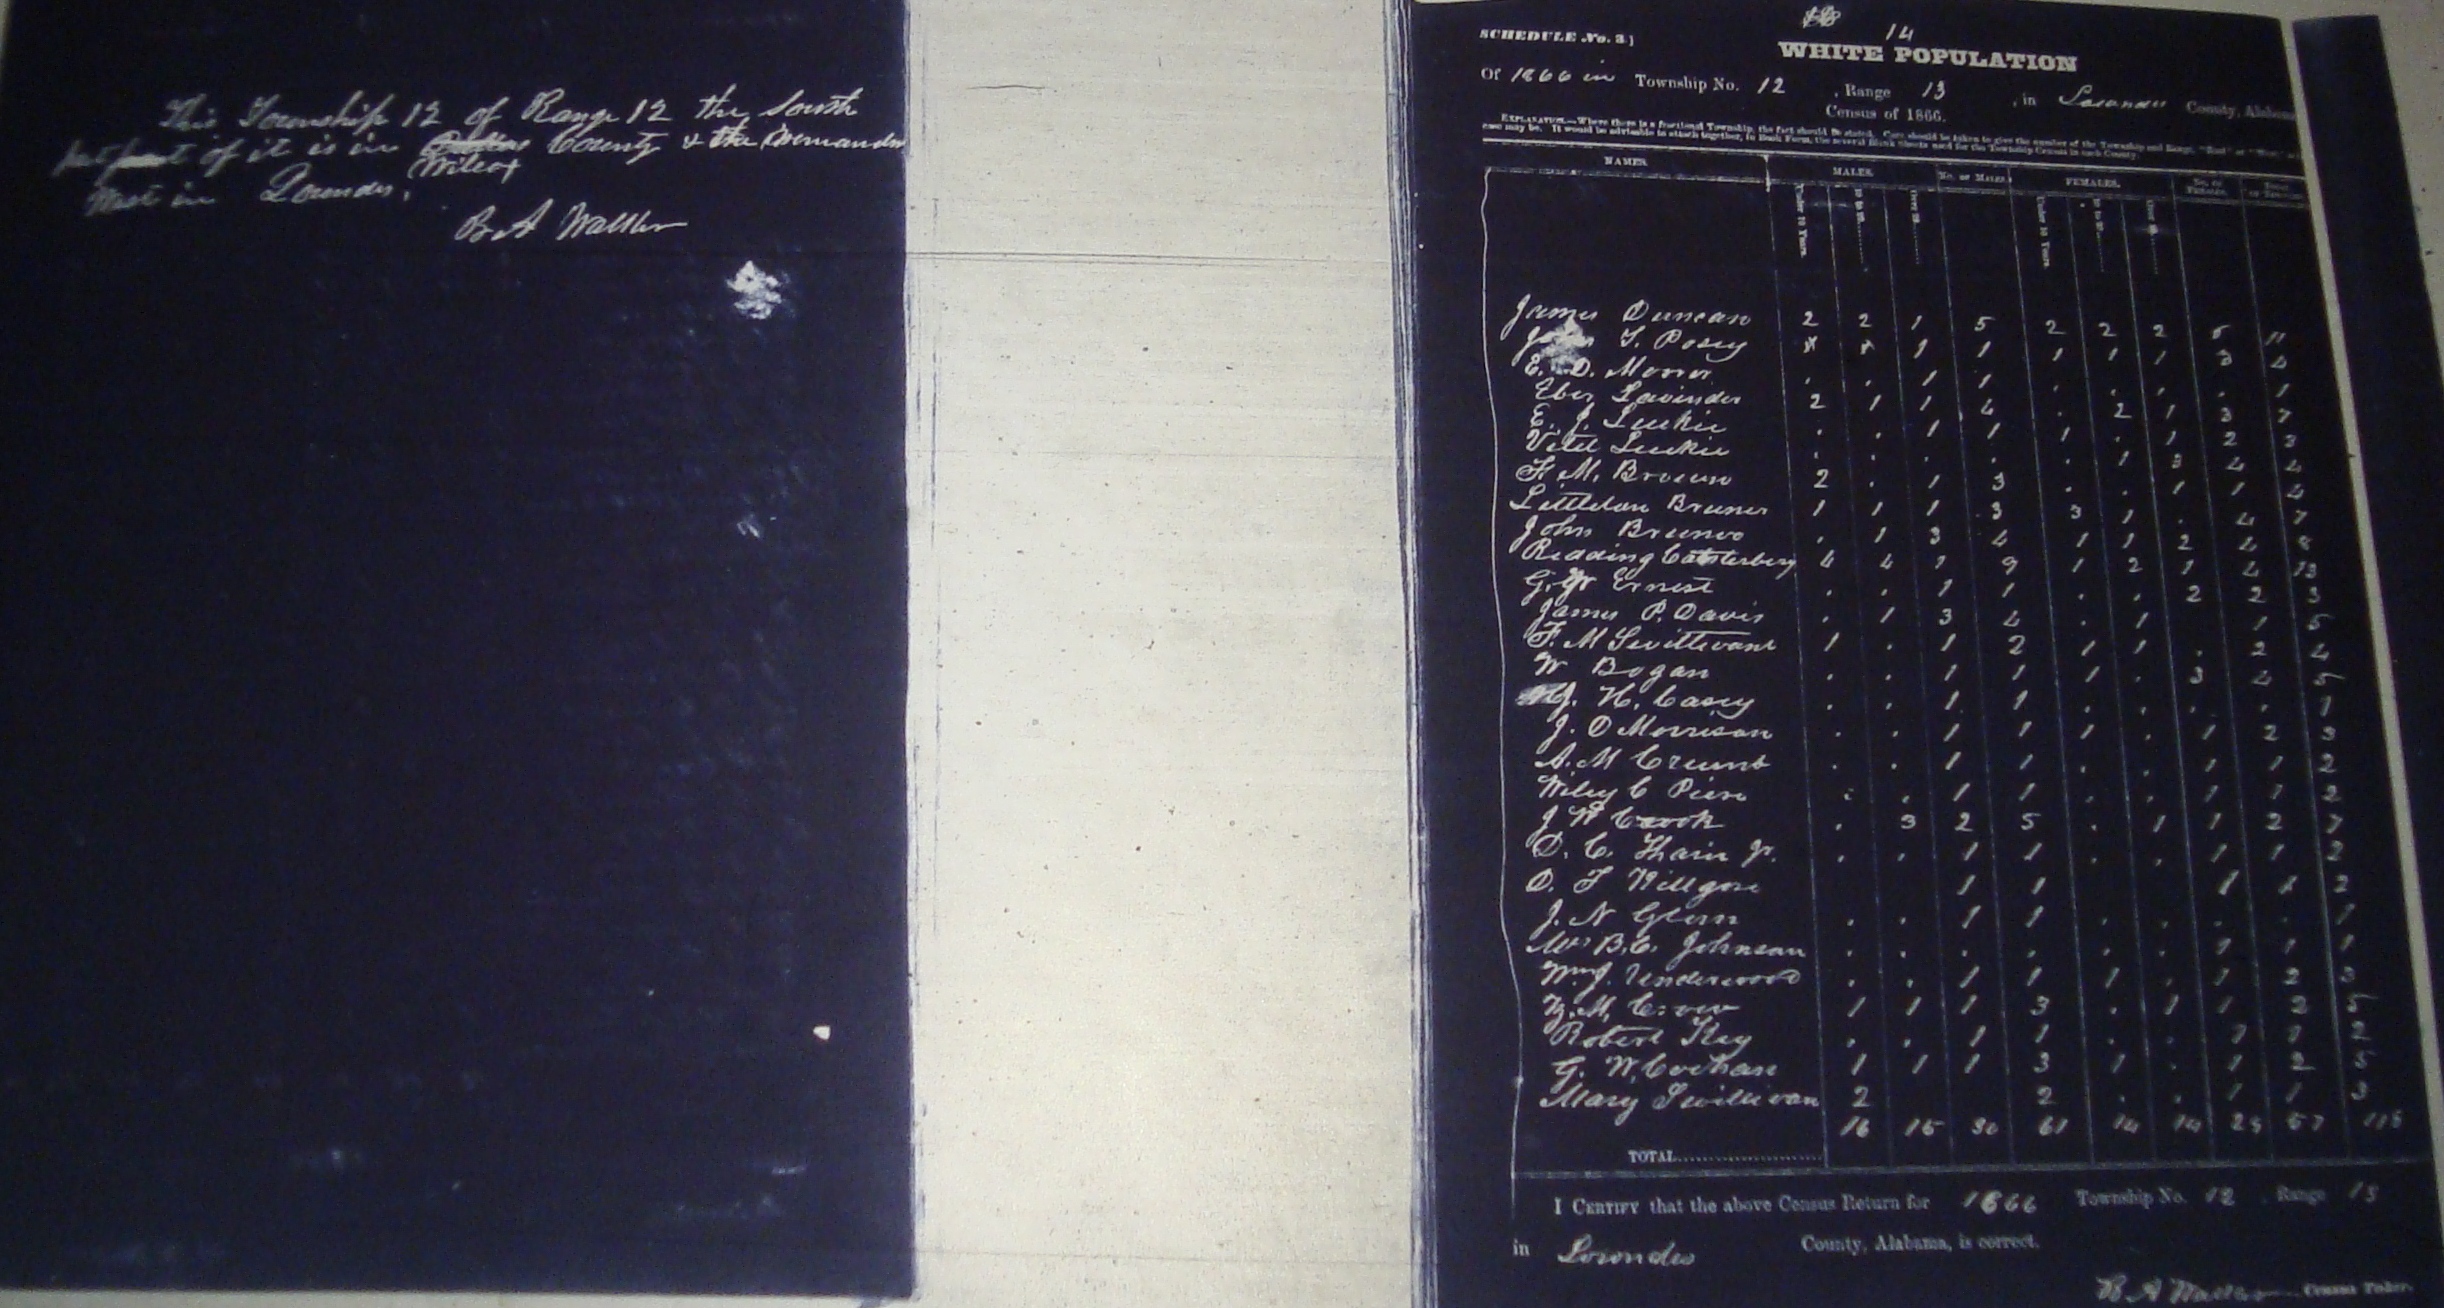 This Township 12 of Range 12 the South
part of it is in County & the
Wilcox
in Lowndes.
B A Walker
14
SCHEDULE No. 3}
WHITE POPULATION
Of 1866 in Township No. 12, Range 13, in Lowndes County, Alabama
Census of 1866.
EXPLANATION.—Where there is a fractional Township, the fact should be stated. Care should be taken to give the number of the Township and Range, "East" or "West" as
case may be. It would be advisable to attach together, in Book Form, the several Blank Sheets used for the Township Census in each County.
NAMES. MALES. No. of Males FEMALES. No. of Females. Total
Under 10 Years. Under 10 Years.
James Duncan 2 2 1 5 2 2 2 11
T. Posey 1 1 1 1 1 3 4
E. D. . . 1 1 . . . . 1
Eber Lavinder 2 1 1 4 . 2 1 3 7
E. J. Luckie . . 1 1 1 . 1 2 3
Luckie . . . . . 1 3 4 4
F. M. Brown 2 . 1 3 . . 1 1 4
Littleton Bruner 1 1 1 3 3 1 . 4 7
John . 1 3 4 1 1 2 4 8
Reading 4 4 1 9 1 2 1 4 13
G. W Ernest . . 1 1 . . 2 2 3
James P. Davis . 1 3 4 . 1 1 5
F. M 1 . 1 2 1 1 . 2 4
W Bogan . . 1 1 1 . 3 4 5
J. H. Casey . . 1 1 . . . . 1
J. D Morrison . . 1 1 1 . 1 2 3
A. M Crumb . . 1 1 . . 1 1 2
Wiley C . . 1 1 . . 1 1 2
J W Crook . 3 2 5 . 1 1 2 7
D. C. Jr. . . 1 1 . . 1 1 2
D. F 1 1 1 1 2
J. N Glenn . . 1 1 . . . . 1
Mrs B. C. Johnson . . . . . . 1 1 1
Wm J. Underwood . . 1 1 1 . 1 2 3
M. 1 1 1 3 . 1 1 2 5
Robert Key . . 1 1 . . 1 1 2
G. W. 1 1 1 3 1 . 1 2 5
Mary 2 2 . . 1 1 3
16 15 30 61 14 14 29 57 118
TOTAL
I CERTIFY that the above Census Return for 1866 Township No. 12, Range 13
in Lowndes County, Alabama, is correct.
B A Walker Census Taker.